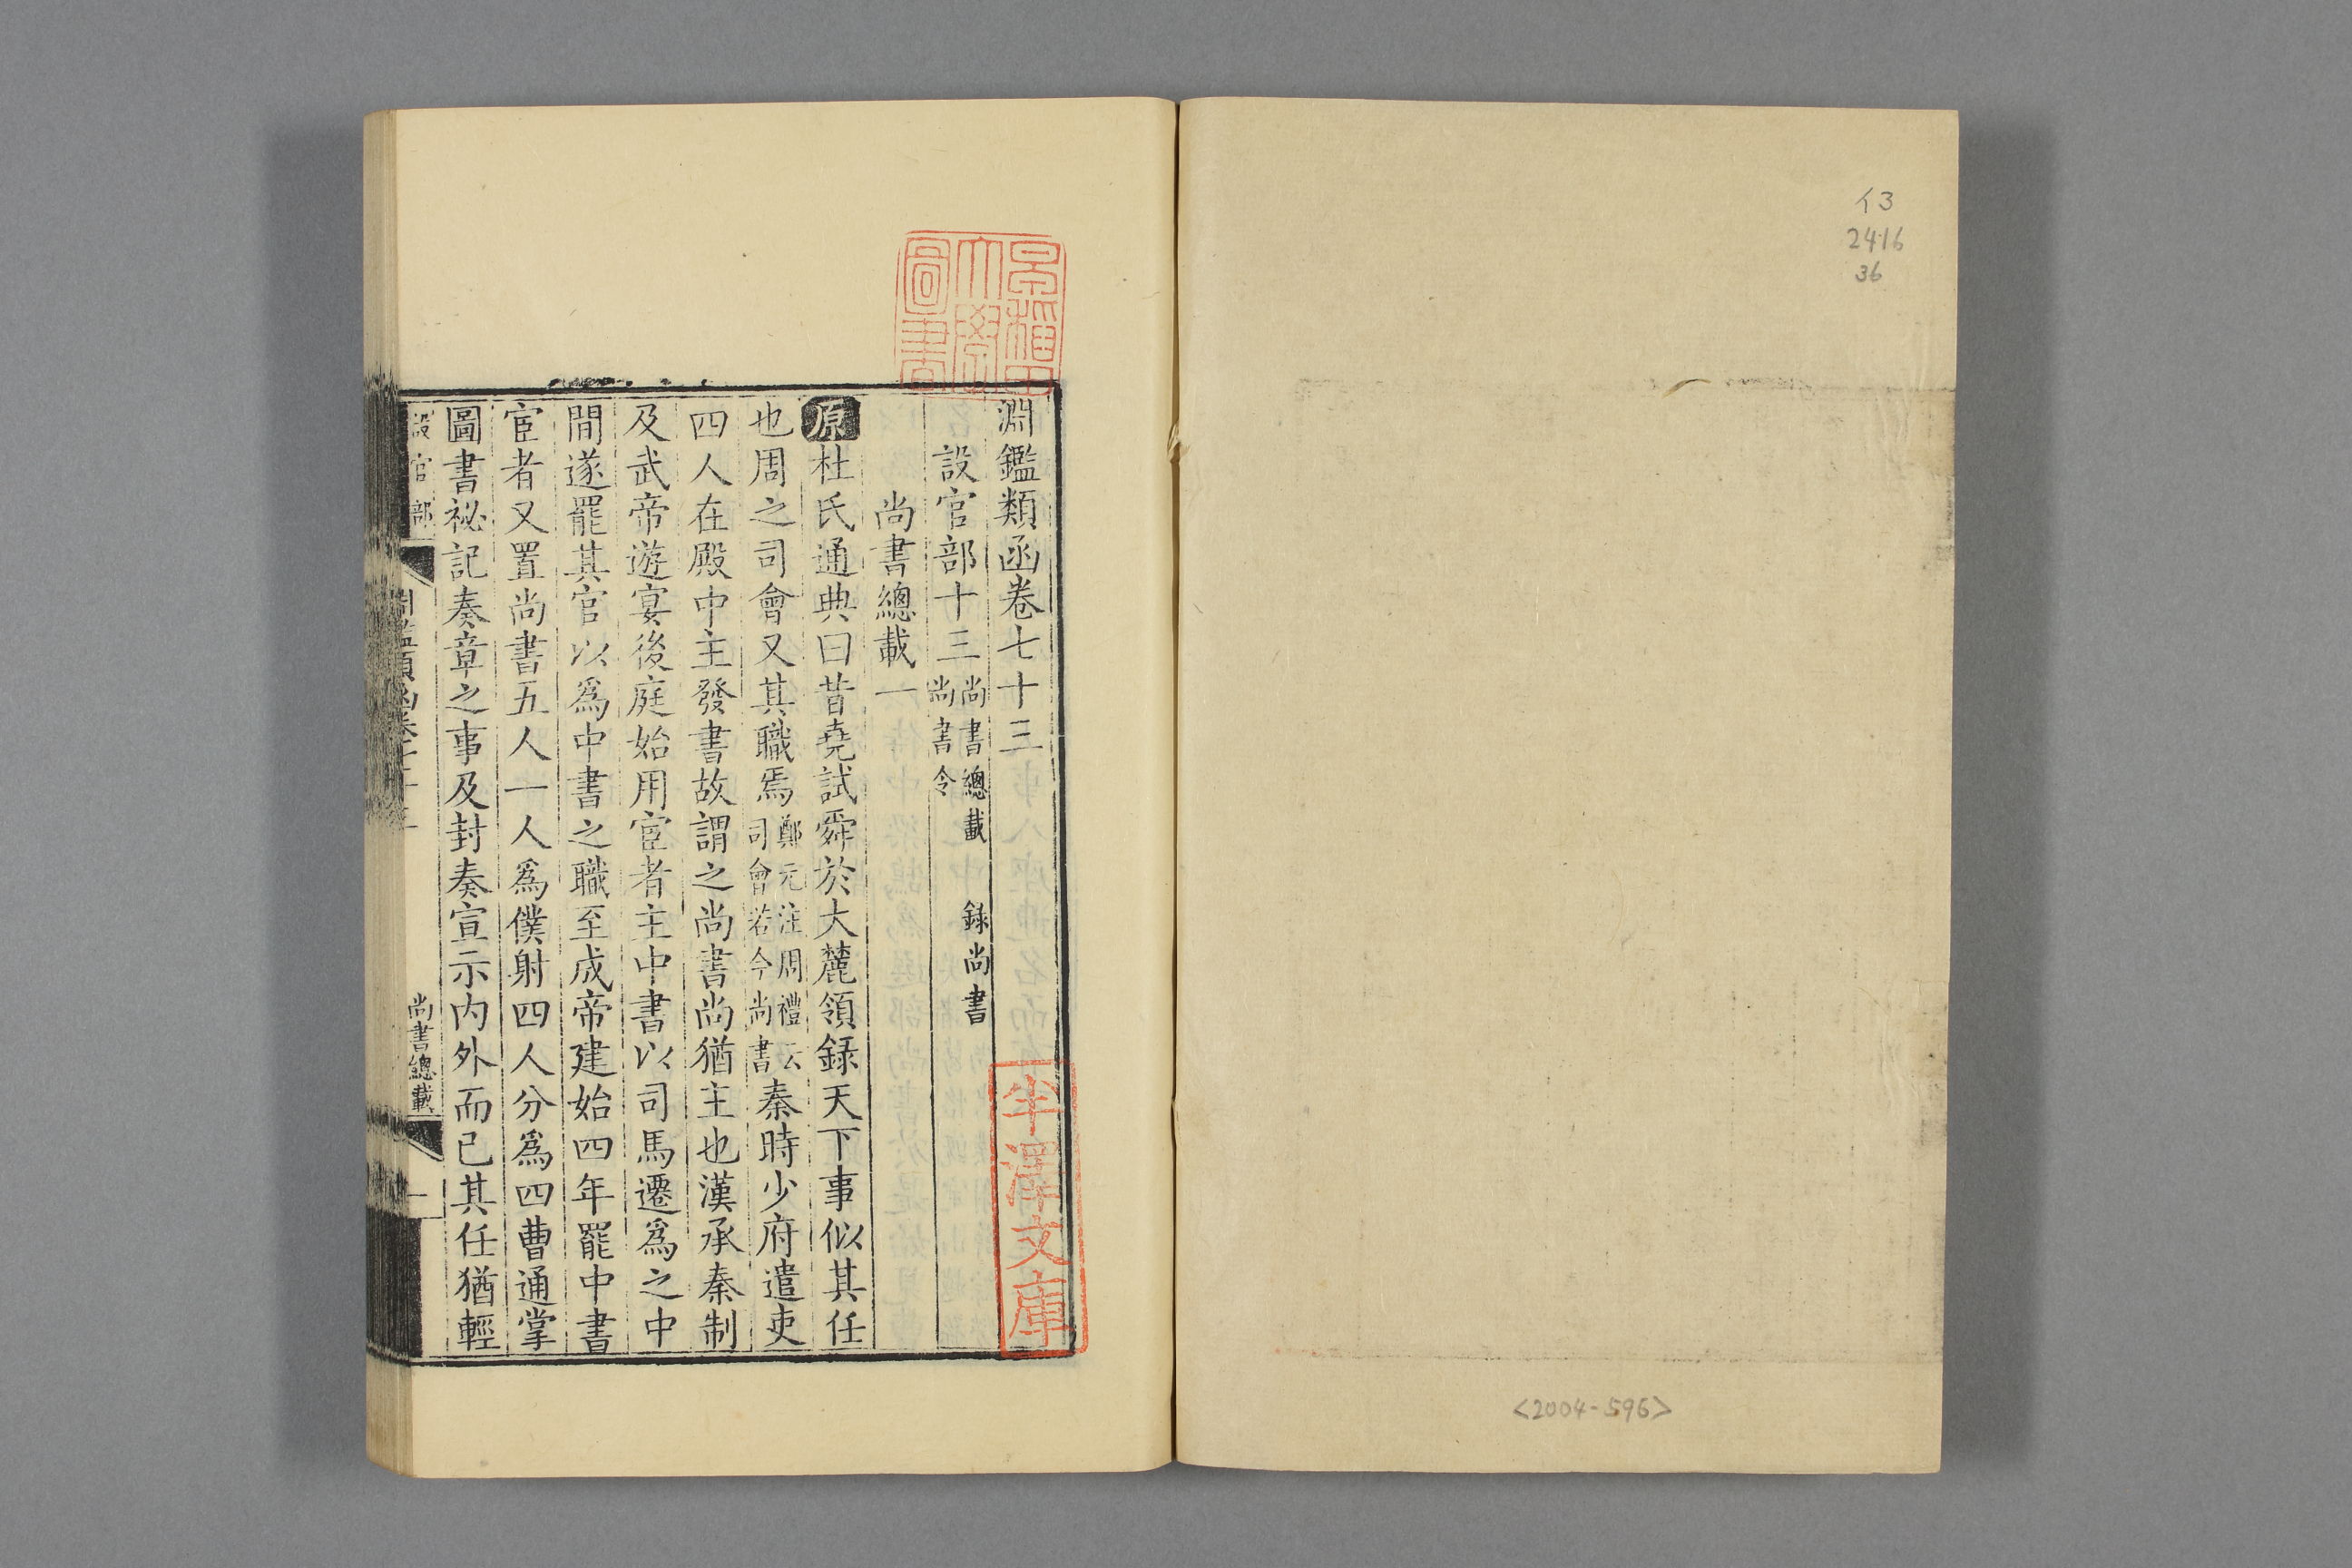 イ3
2416
36
<2004-596>
早稲田
大學
圖書
淵鑑類函卷七十三
設官部十三尚書總載 錄尚書
尚書令
尚書總載一
原杜氏通典曰昔堯試舜於大麓領録天下事似其任
也周之司會又其職焉鄭元注周禮云
司會若今尚書秦時少府遣吏
四人在殿中主發書故謂之尚書尚猶主也漢承秦制
及武帝遊宴後庭始用宦者主中書以司馬遷爲之中
間遂罷其官以爲中書之職至成帝建始四年罷中書
宦者又置尚書五人一人爲僕射四人分爲四曹通掌
圖書祕記奏章之事及封奏宣示内外而已其任猶輕
設官部
尚書總載
一
半澤文庫